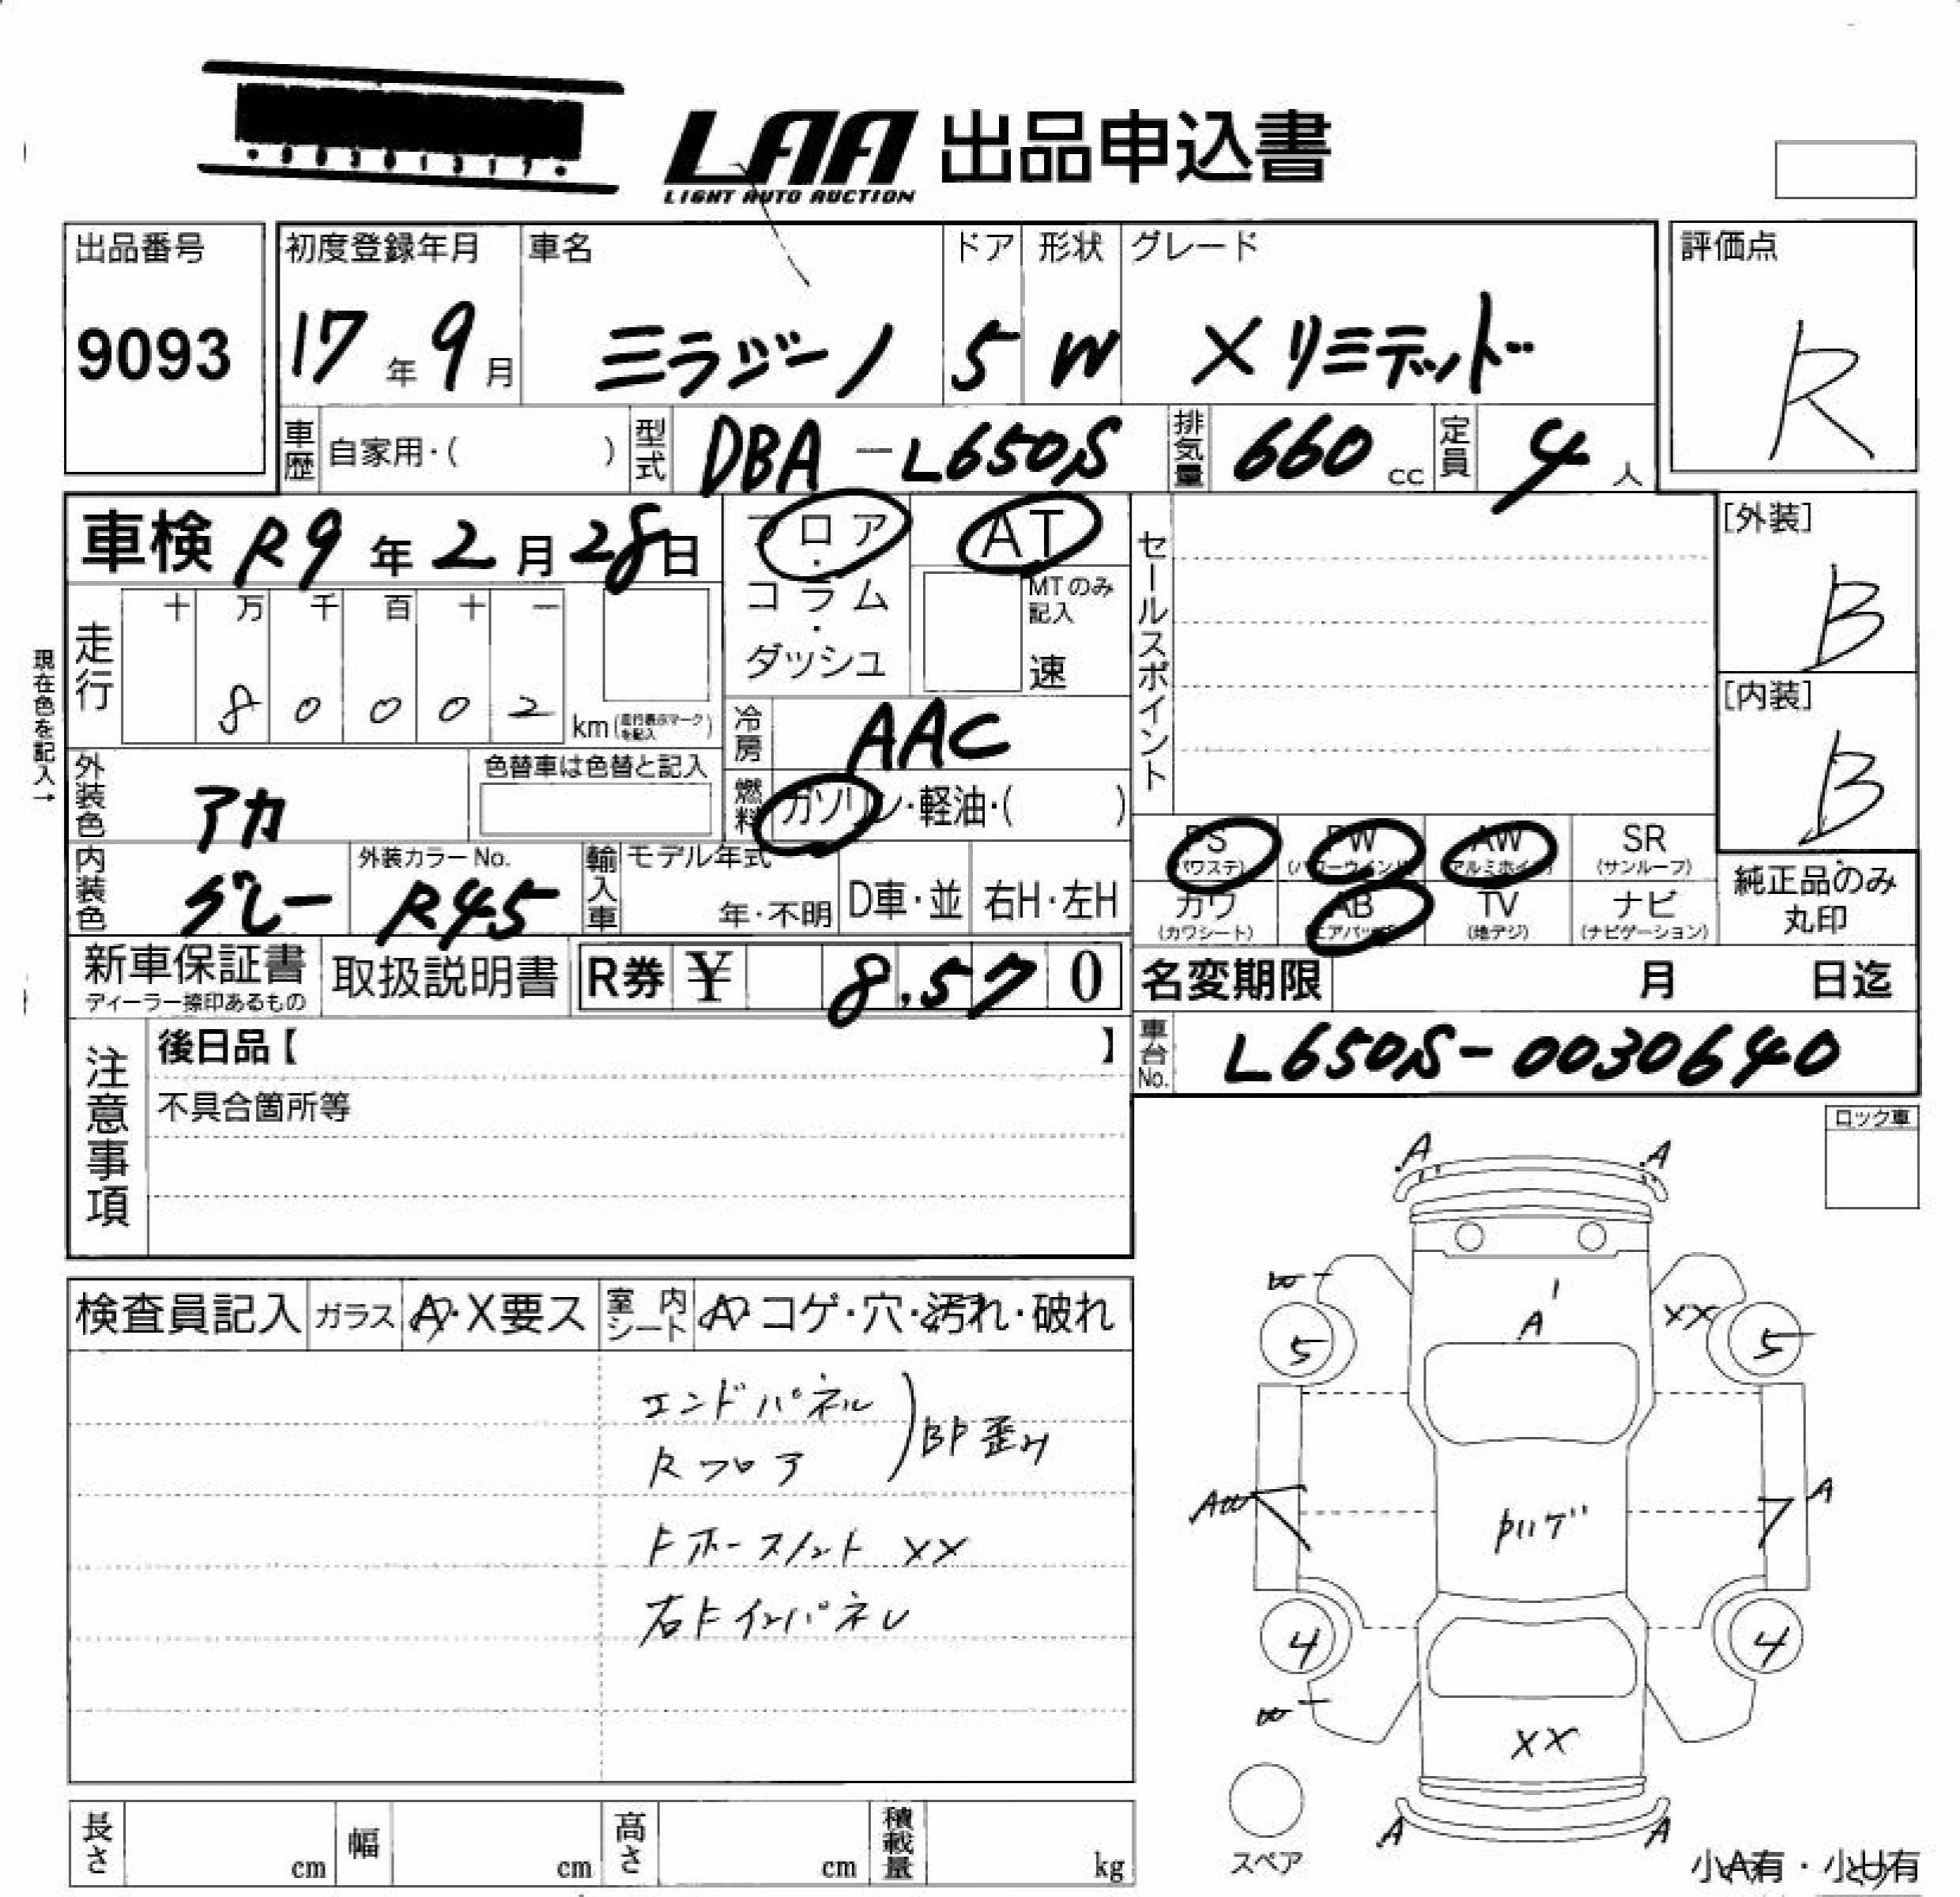 LAA 出品申込書
LIGHT AUTO AUCTION
出品番号
9093
初度登録年月
17年9月
車名
ミラジーノ
ドア
5
形状
W
グレード
Xリミテッド
評価点
R
車歴 自家用・( )
型式 DBA-L650S
排気量 660 cc
定員 4人
車検 R9年2月28日
フロア・コラム・ダッシュ
AT
MTのみ記入
速
セールスポイント
[外装]
B
[内装]
B
現在色を記入→
走行
十 万 千 百 十 一
8 0 0 0 2 km (走行表示マークを記入)
冷房 AAC
燃料 ガソリン・軽油・( )
外装色 アカ
色替車は色替と記入
内装色 グレー
外装カラーNo.
R45
輸入車
モデル年式
年・不明
D車・並
右H・左H
PS (パワステ)
PW (パワーウインド)
AW (アルミホイル)
SR (サンルーフ)
カワ (カワシート)
AB (エアバッグ)
TV (地デジ)
ナビ (ナビゲーション)
純正品のみ丸印
新車保証書
ディーラー捺印あるもの
取扱説明書
R券 ¥ 8,570
名変期限 月 日迄
車台No. L650S-0030640
注意事項
後日品【 】
不具合箇所等
ロック車
検査員記入
ガラス A・X要ス
室内シート A・コゲ・穴・汚れ・破れ
エンドパネル
Rフロア
BP歪み
Fホースメント XX
右Fインパネル
A A
W
A
XX
5 5
AW
A
4 4
W
XX
A A
スペア
小A有・小U有
長さ cm
幅 cm
高さ cm
積載量 kg